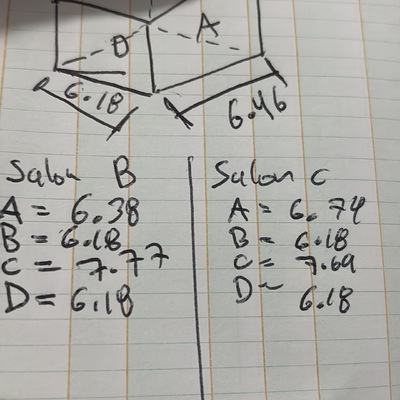 D
A
6.18
6.46
Salon B
A = 6.38
B = 6.18
C = 7.77
D = 6.18
Salon C
A = 6.74
B = 6.18
C = 7.69
D = 6.18